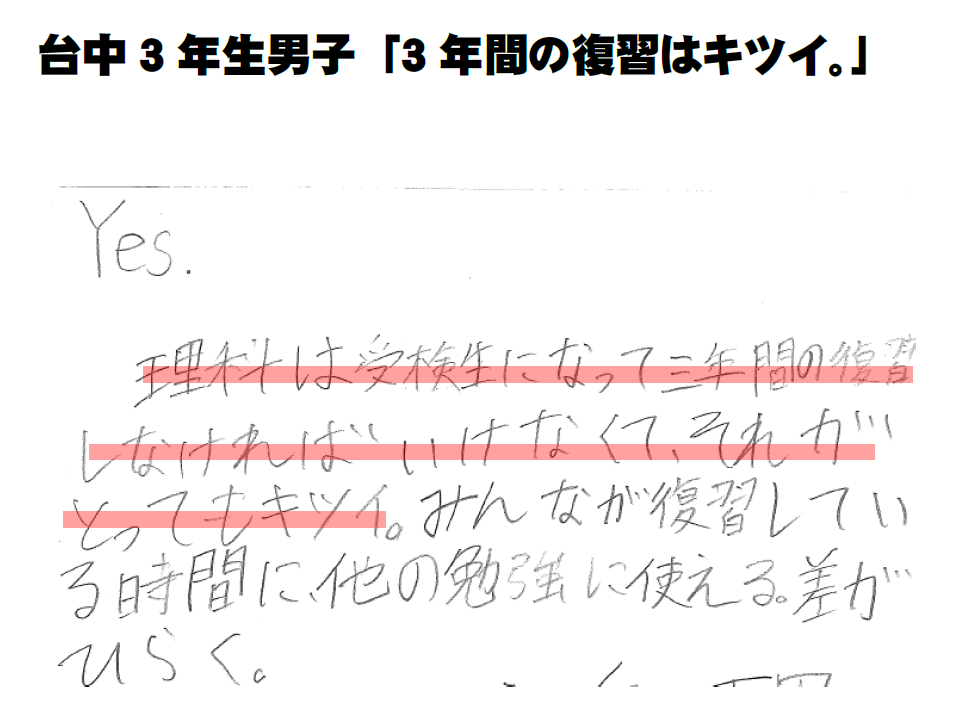 台中3年生男子「3年間の復習はキツイ。」
Yes.
理科は受検生になって三年間の復習
しなければいけなくて、それが
とってもキツイ。みんなが復習してい
る時間に、他の勉強に使える。差が
ひらく。